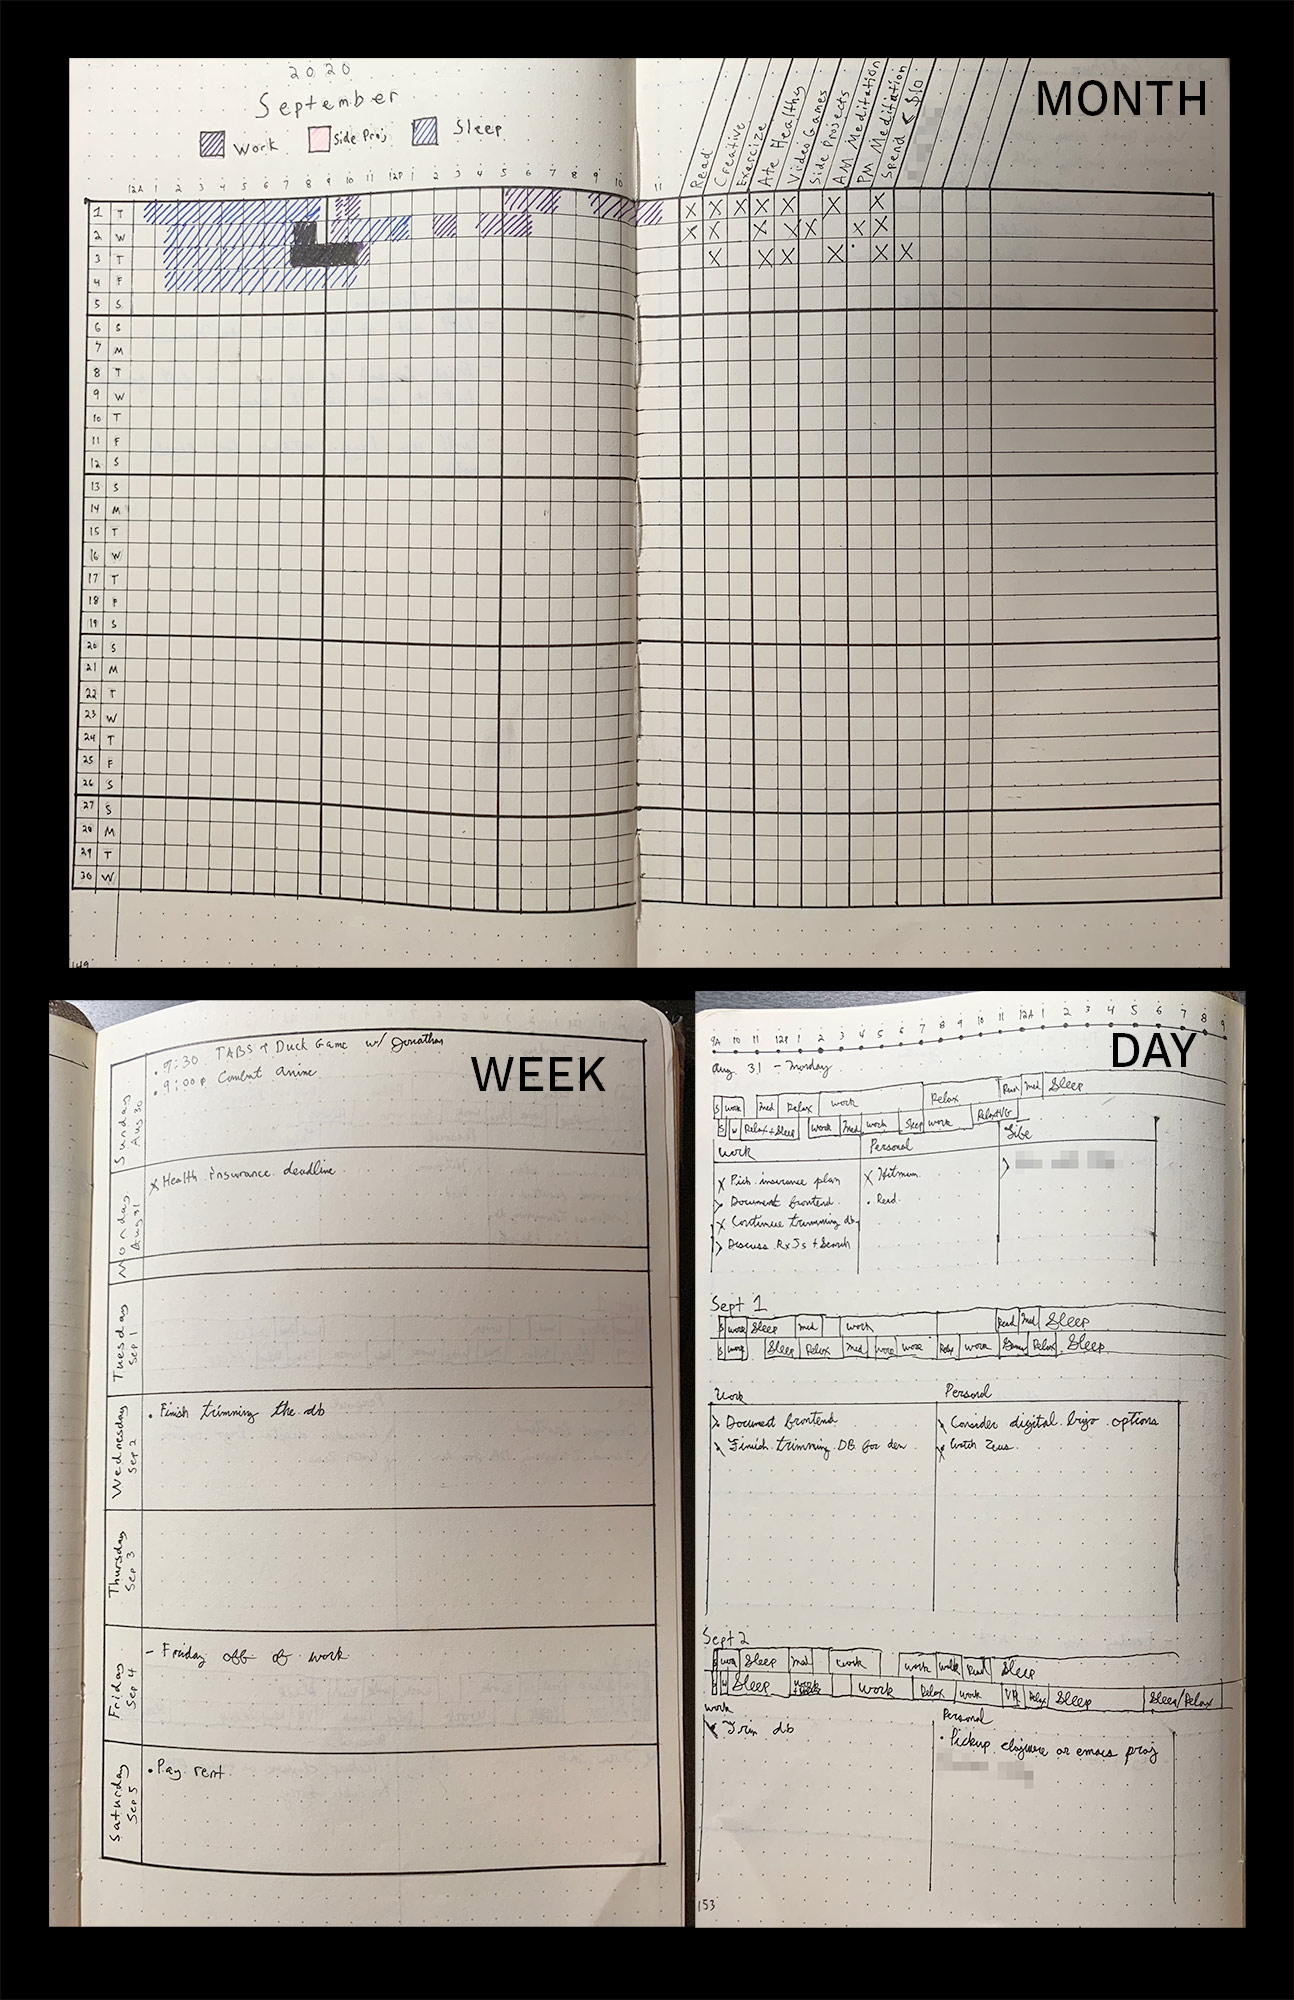 MONTH
2020
September
Work Side Proj Sleep
12A 1 2 3 4 5 6 7 8 9 10 11 12P 1 2 3 4 5 6 7 8 9 10 11
Read
Creative
Exercize
Ate Healthy
Video Games
Side Projects
AM Meditation
PM Meditation
Spend < $10
1 T X X X X X X X
2 W X X X X X X X
3 T X X X X X X
4 F
5 S
6 S
7 M
8 T
9 W
10 T
11 F
12 S
13 S
14 M
15 T
16 W
17 T
18 F
19 S
20 S
21 M
22 T
23 W
24 T
25 F
26 S
27 S
28 M
29 T
30 W
149
WEEK
Sunday Aug 30
• 7:30 TABS + Duck Game w/ Jonathan
• 9:00p Combat anime
Monday Aug 31
X Health insurance deadline
Tuesday Sep 1
Wednesday Sep 2
• Finish trimming the db
Thursday Sep 3
Friday Sep 4
- Friday off of work
Saturday Sep 5
• Pay rent
DAY
9A 10 11 12P 1 2 3 4 5 6 7 8 9 10 11 12A 1 2 3 4 5 6 7 8 9
Aug 31 - Monday
S work med Relax work Relax Read med Sleep
S W Relax+Sleep work med work Sleep work Relax+VG
Work Personal Life
X Pick insurance plan
> Document frontend
X Continue trimming db
> Discuss RxJs + Search
X Hitman
• Read
>
Sept 1
S work Sleep med work Read med Sleep
S work Sleep Relax med work work Relax work Relax Sleep
Work Personal
> Document frontend
Finish trimming DB for dev
Consider digital bujo options
Watch Zeus
Sept 2
Sleep med work work walk Read Sleep
W Sleep work Relax work VR Relax Sleep Sleep/Relax
Work Personal
Trim db
• Pickup clojure or emacs proj
153